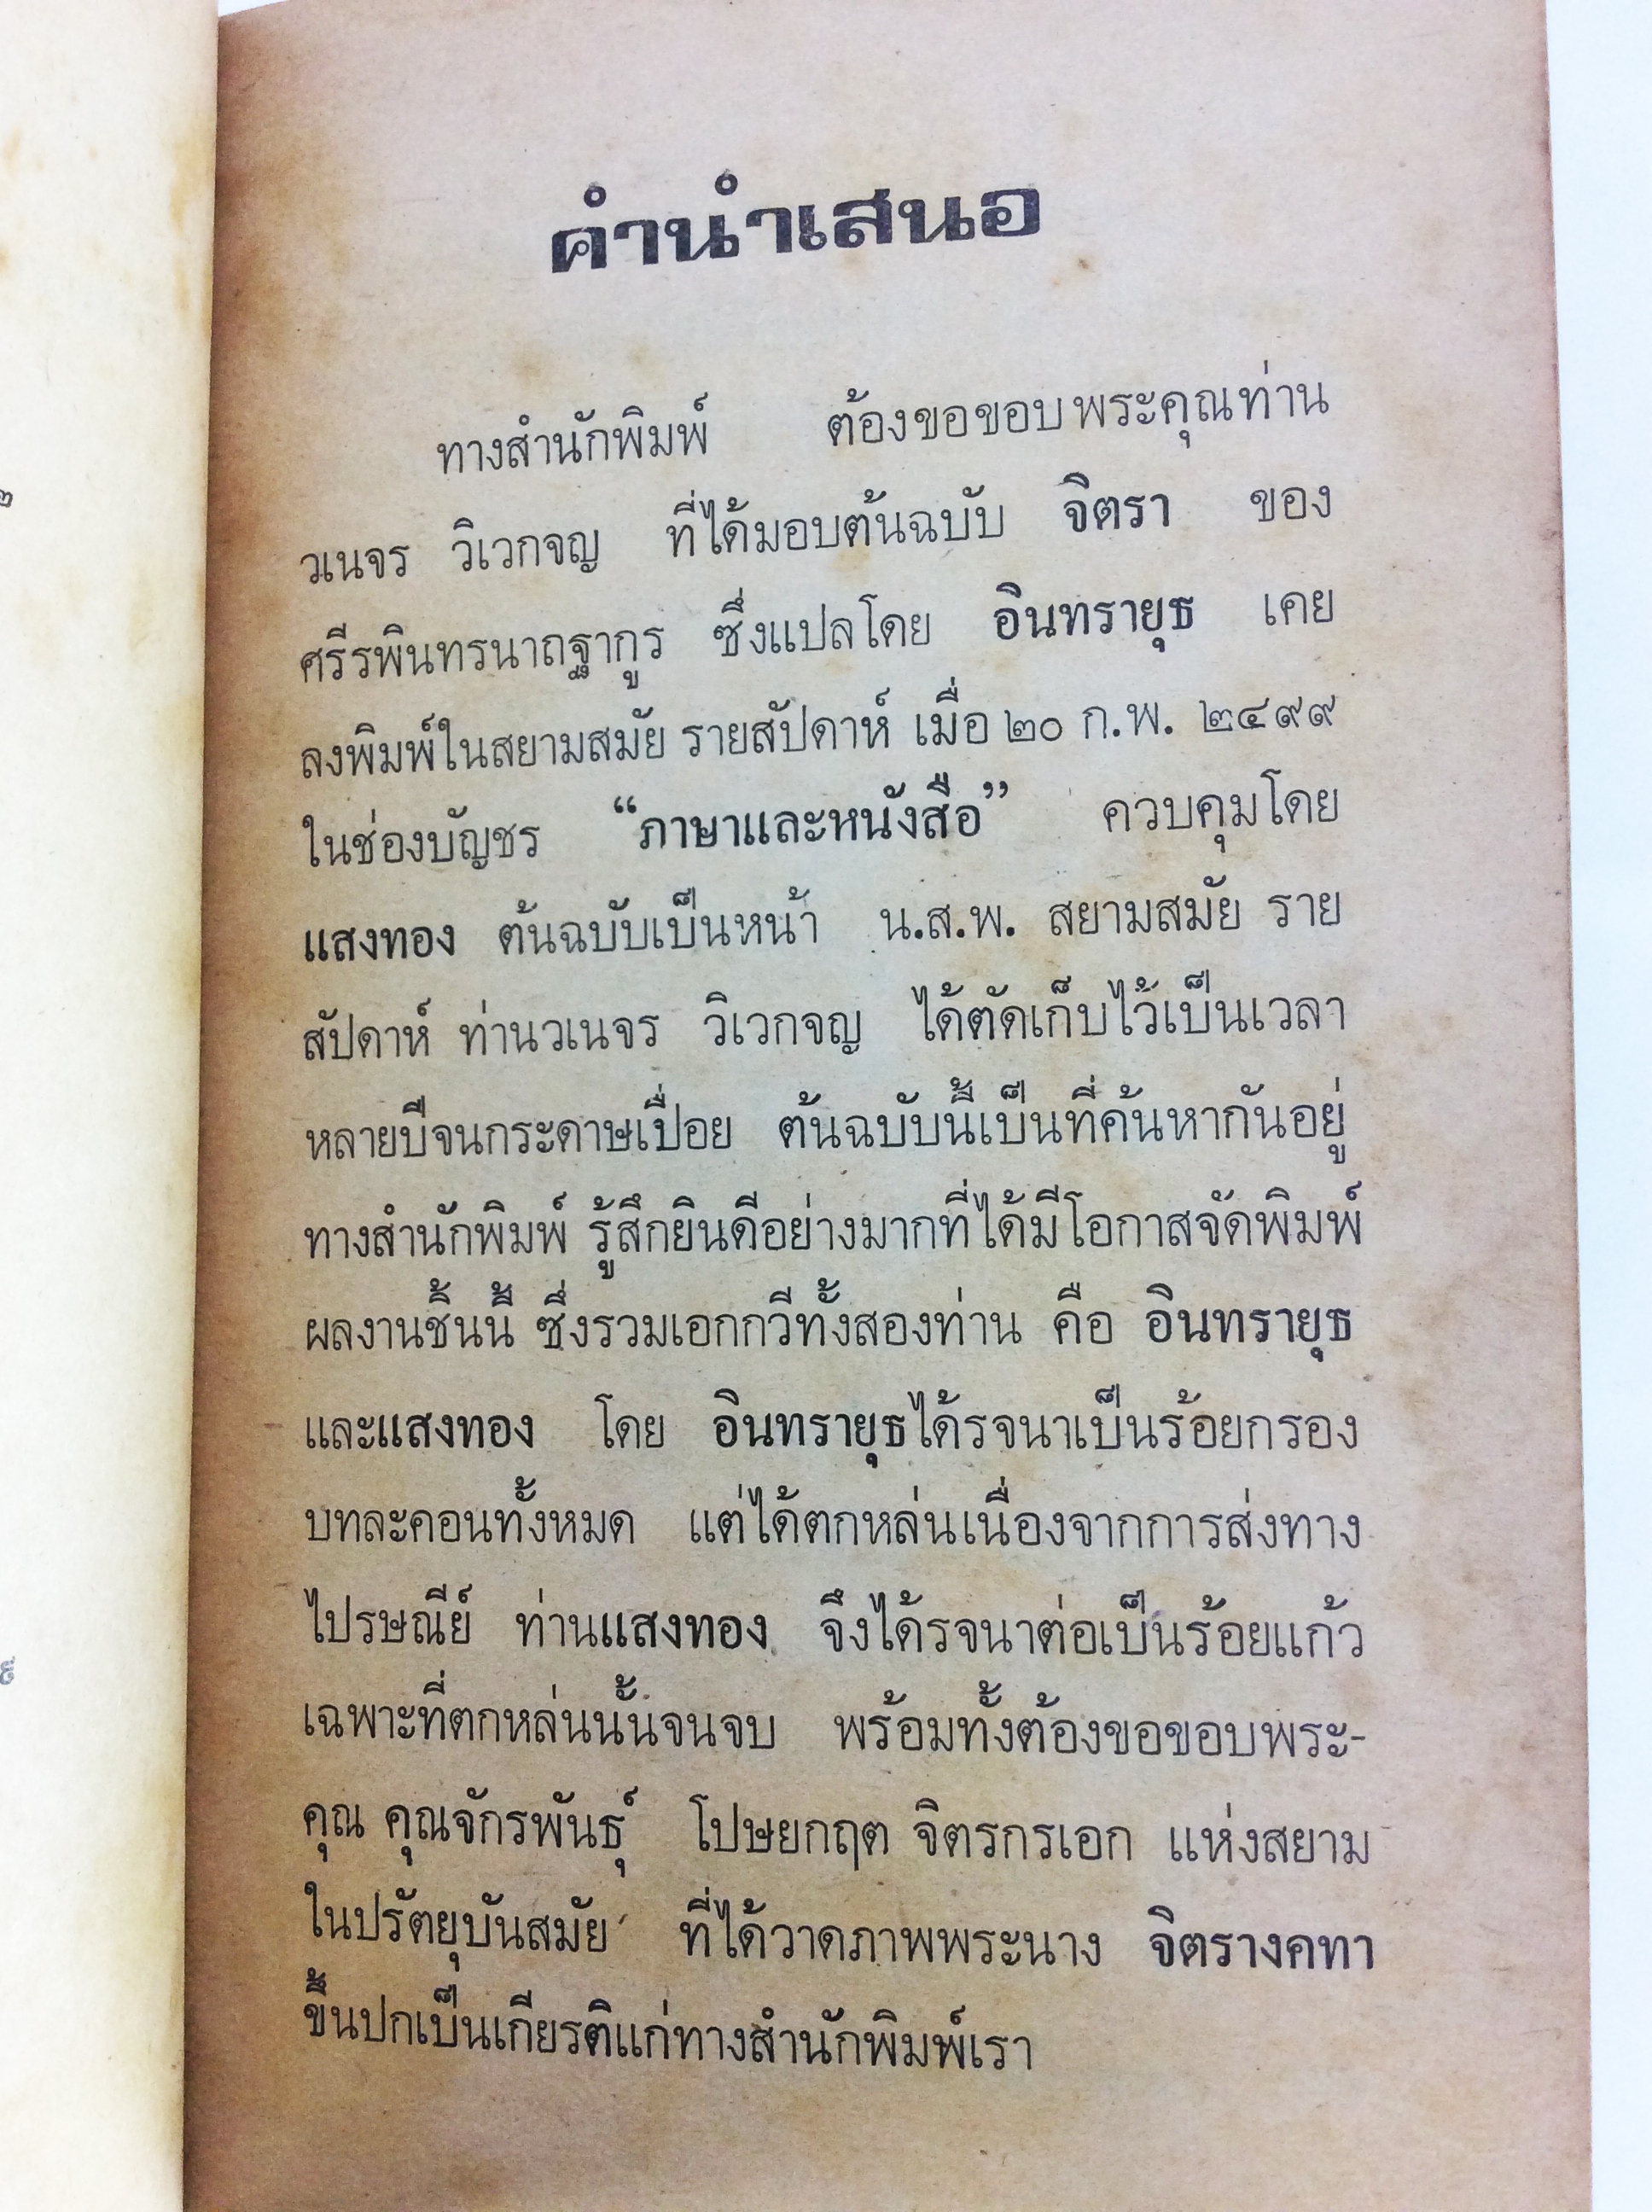 คำนำเสนอ
ทางสำนักพิมพ์ ต้องขอขอบพระคุณท่าน
วเนจร วิเวกจญ ที่ได้มอบต้นฉบับ จิตรา ของ
ศรีรพินทรนาถฐากูร ซึ่งแปลโดย อินทรายุธ เคย
ลงพิมพ์ในสยามสมัย รายสัปดาห์ เมื่อ ๒๐ ก.พ. ๒๔๙๙
ในช่องบัญชร “ภาษาและหนังสือ” ควบคุมโดย
แสงทอง ต้นฉบับเป็นหน้า น.ส.พ. สยามสมัย ราย
สัปดาห์ ท่านวเนจร วิเวกจญ ได้ตัดเก็บไว้เป็นเวลา
หลายปีจนกระดาษเปื่อย ต้นฉบับนี้เป็นที่ค้นหากันอยู่
ทางสำนักพิมพ์ รู้สึกยินดีอย่างมากที่ได้มีโอกาสจัดพิมพ์
ผลงานชิ้นนี้ ซึ่งรวมเอกกวีทั้งสองท่าน คือ อินทรายุธ
และแสงทอง โดย อินทรายุธได้รจนาเป็นร้อยกรอง
บทละคอนทั้งหมด แต่ได้ตกหล่นเนื่องจากการส่งทาง
ไปรษณีย์ ท่านแสงทอง จึงได้รจนาต่อเป็นร้อยแก้ว
เฉพาะที่ตกหล่นนั้นจนจบ พร้อมทั้งต้องขอขอบพระ-
คุณ คุณจักรพันธุ์ โปษยกฤต จิตรกรเอก แห่งสยาม
ในปรัตยุบันสมัย ที่ได้วาดภาพพระนาง จิตรางคทา
ขึ้นปกเป็นเกียรติแก่ทางสำนักพิมพ์เรา